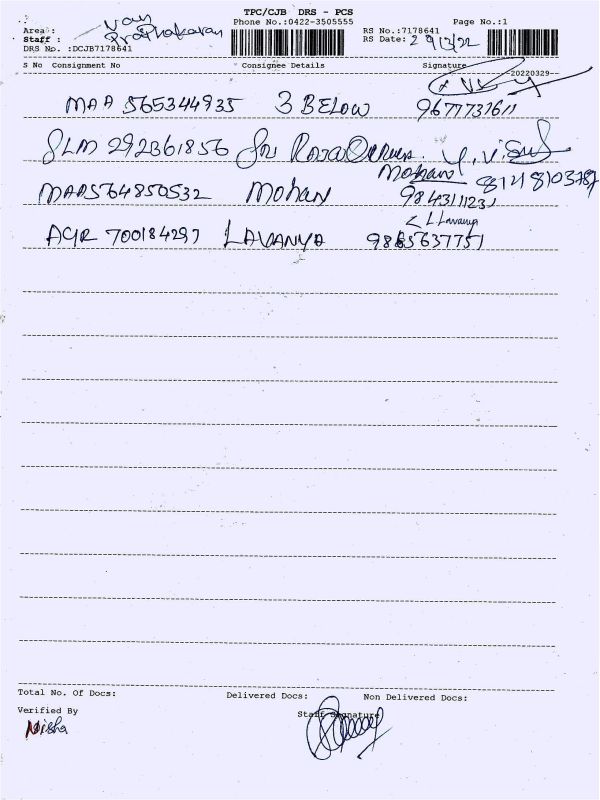 TPC/CJB DRS - PCS
Phone No.:0422-3505555 Page No.:1
Area : Van
Staff : Prabhakaran
DRS No. :DCJB7178641
RS No.:7178641
RS Date: 29/3/22
S No Consignment No Consignee Details Signature
20220329--
MAA 565344935 3 BELOW 9677737611
SLM 292361856 Sri Raja
Mohan 8148103787
MAA564850532 Mohan 9843111231
L Lavanya
AGR 700184297 LAVANYA 9865637751
Total No. Of Docs: Delivered Docs: Non Delivered Docs:
Verified By Staff Signature
Nisha